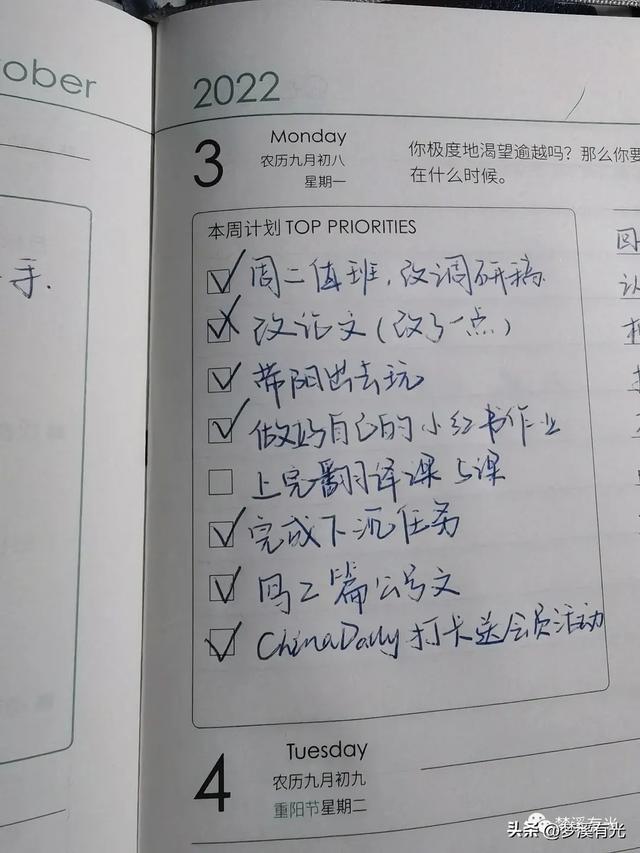 ober
2022
3
Monday
农历九月初八
星期一
你极度地渴望逾越吗？那么你要
在什么时候。
本周计划 TOP PRIORITIES
手.
周二值班，改调研稿.
改论文（改了一点）
带阳出去玩
做好自己的小红书作业
上完翻译课 5课
完成下沉任务
写2篇公号文
ChinaDaily 打卡送会员活动
4
Tuesday
农历九月初九
重阳节星期二
梦溪有光
头条 @梦溪有光